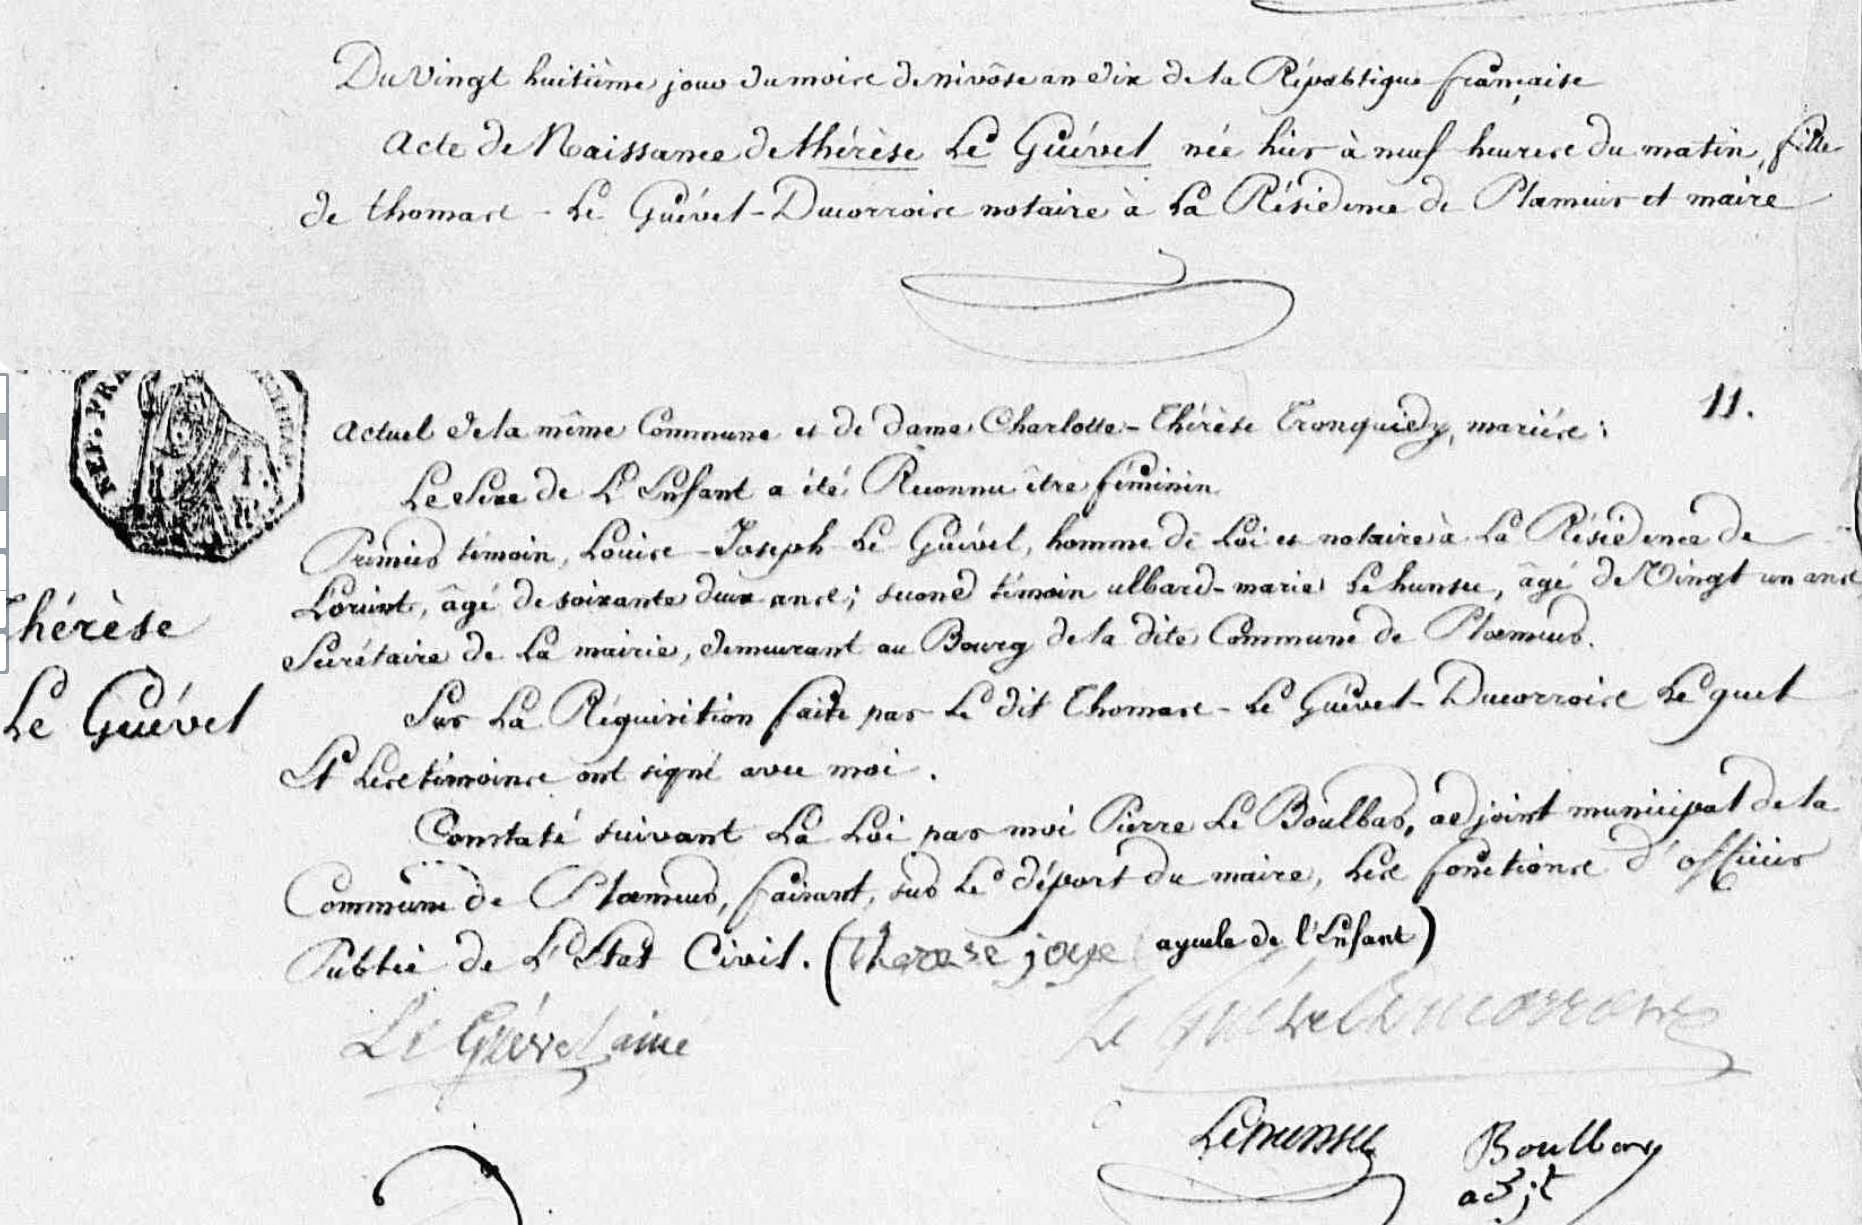 Du Vingt huitième jour du mois de nivôse an dix de la République française
Acte de Naissance de thérèse Le Guével née hier à neuf heures du matin, fille
de thomas - Le Guével - Ducorrois notaire à La Résidence de Plœmeur et maire
11.
REP. FRA
actuel de la même Commune et de dame Charlotte - Thérèse Tronquidy, mariés :
Le Sexe de L'Enfant a été Reconnu être féminin
Premier témoin, Louis - Joseph Le Guével, homme de Loi et notaire à La Résidence de
L'orient, âgé de soixante deux ans ; second témoin ulbard - marie Le hunsec, âgé de Vingt un ans
Secrétaire de La mairie, demeurant au Bourg de la dite Commune de Plœmeur.
Thérèse
Le Guével
Sur La Réquisition faite par Le dit Thomas - Le Guével - Ducorrois Le quel
Et Les témoins ont signé avec moi .
Constaté suivant La Loi par moi Pierre Le Boulbar, adjoint municipal de la
Commune de Plœmeur, faisant, sur Le départ du maire, Les fonctions d'officier
Public de L'Etat Civil. (Therese joye ayeule de l'Enfant)
Le Guével ainé
Le Guével Ducorrois
Le hunsec
Boulbar
adjt